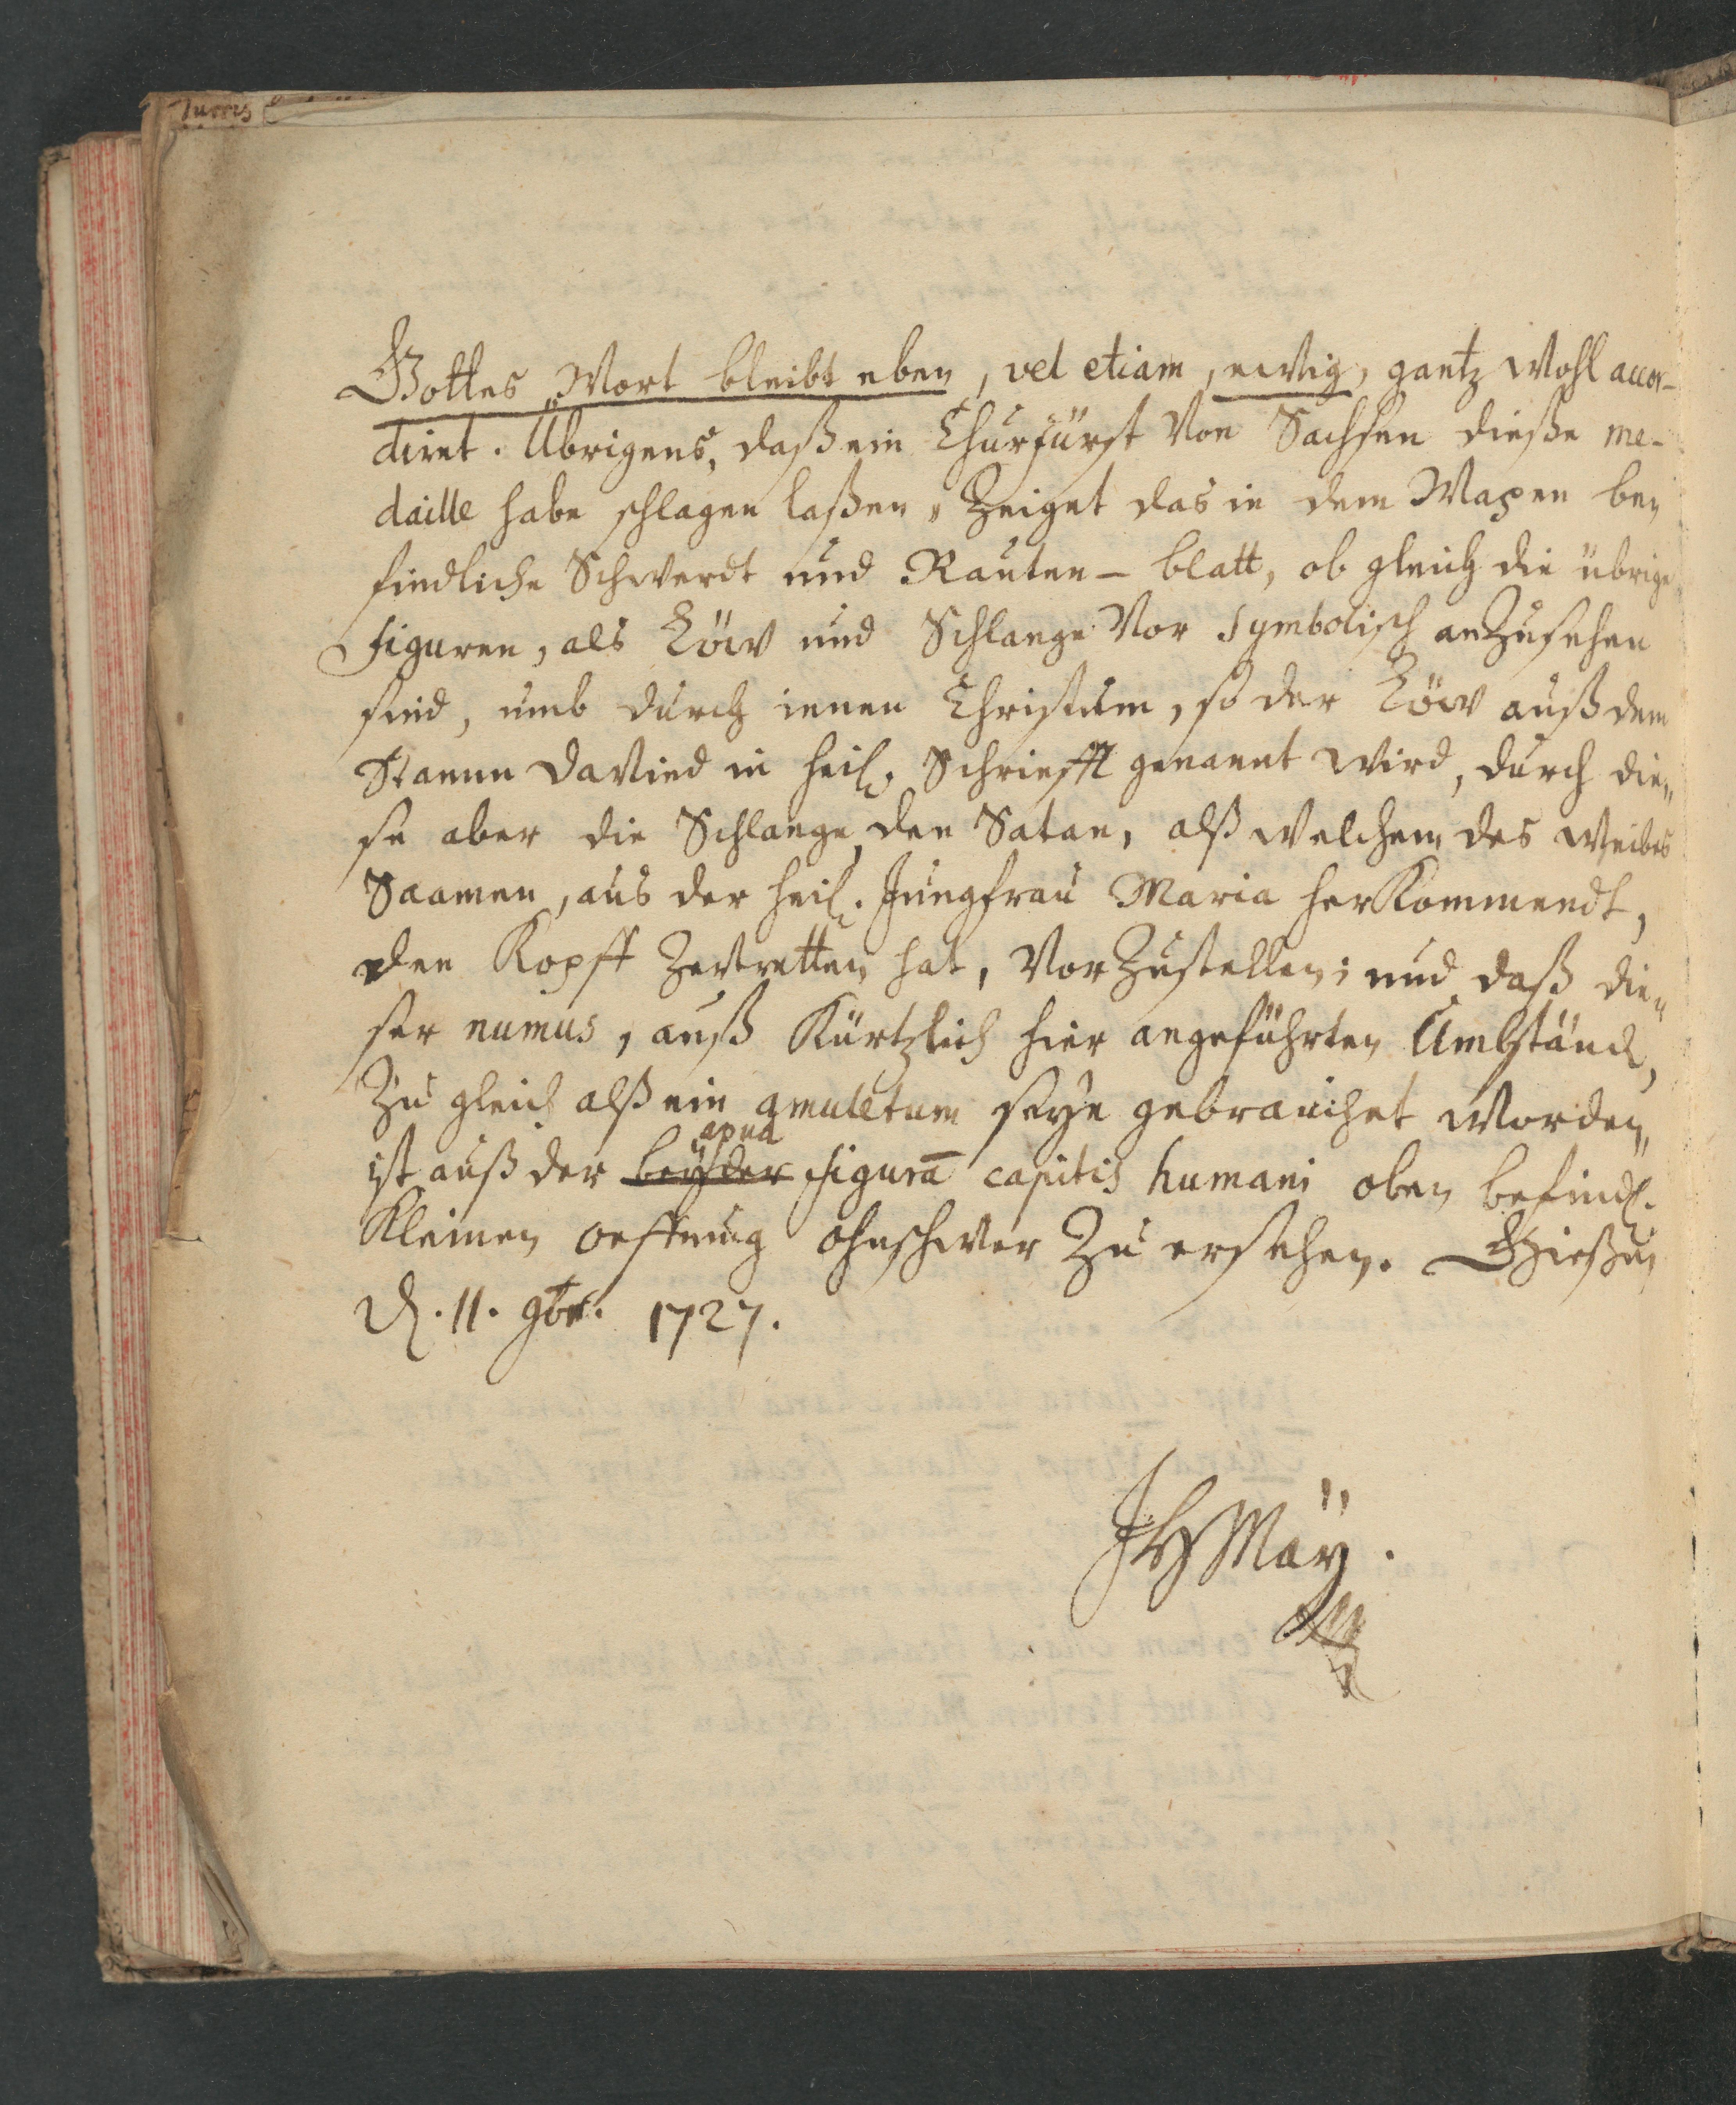 Turris
Gottes Wort bleibt eben, vel etiam, ewig, gantz wohl accor-
diret. Übrigens, daß ein Churfürst von Sachsen dieße me-
daille habe schlagen laßen, zeiget das in dem Wapen be„
findliche Schwerdt und Rauten-blatt, ob gleich die übrige
Figuren, als Löw und Schlange vor symbolisch anzusehen
sind, umb durch jenen Christum, so der Löw auß dem
Stamm David in heil. Schriefft genannt wird, durch die„
se aber die Schlange den Satan, alß welchem des Weibes
Saamen, aus der heil. Jungfrau Maria herkommendt,
den Kopff zertretten hat, vorzustellen; und daß die„
ser numus, auß kürtzlich hier angeführten Umbständ,
zu gleich alß ein amuletum seye gebrauchet worden,
apud
ist auß der bey der figurā capitis humani oben befindl.
kleinen oeffnung ohnschwer zu ersehen. Gießen
d. 11. 9br. 1727.
JHMäy.